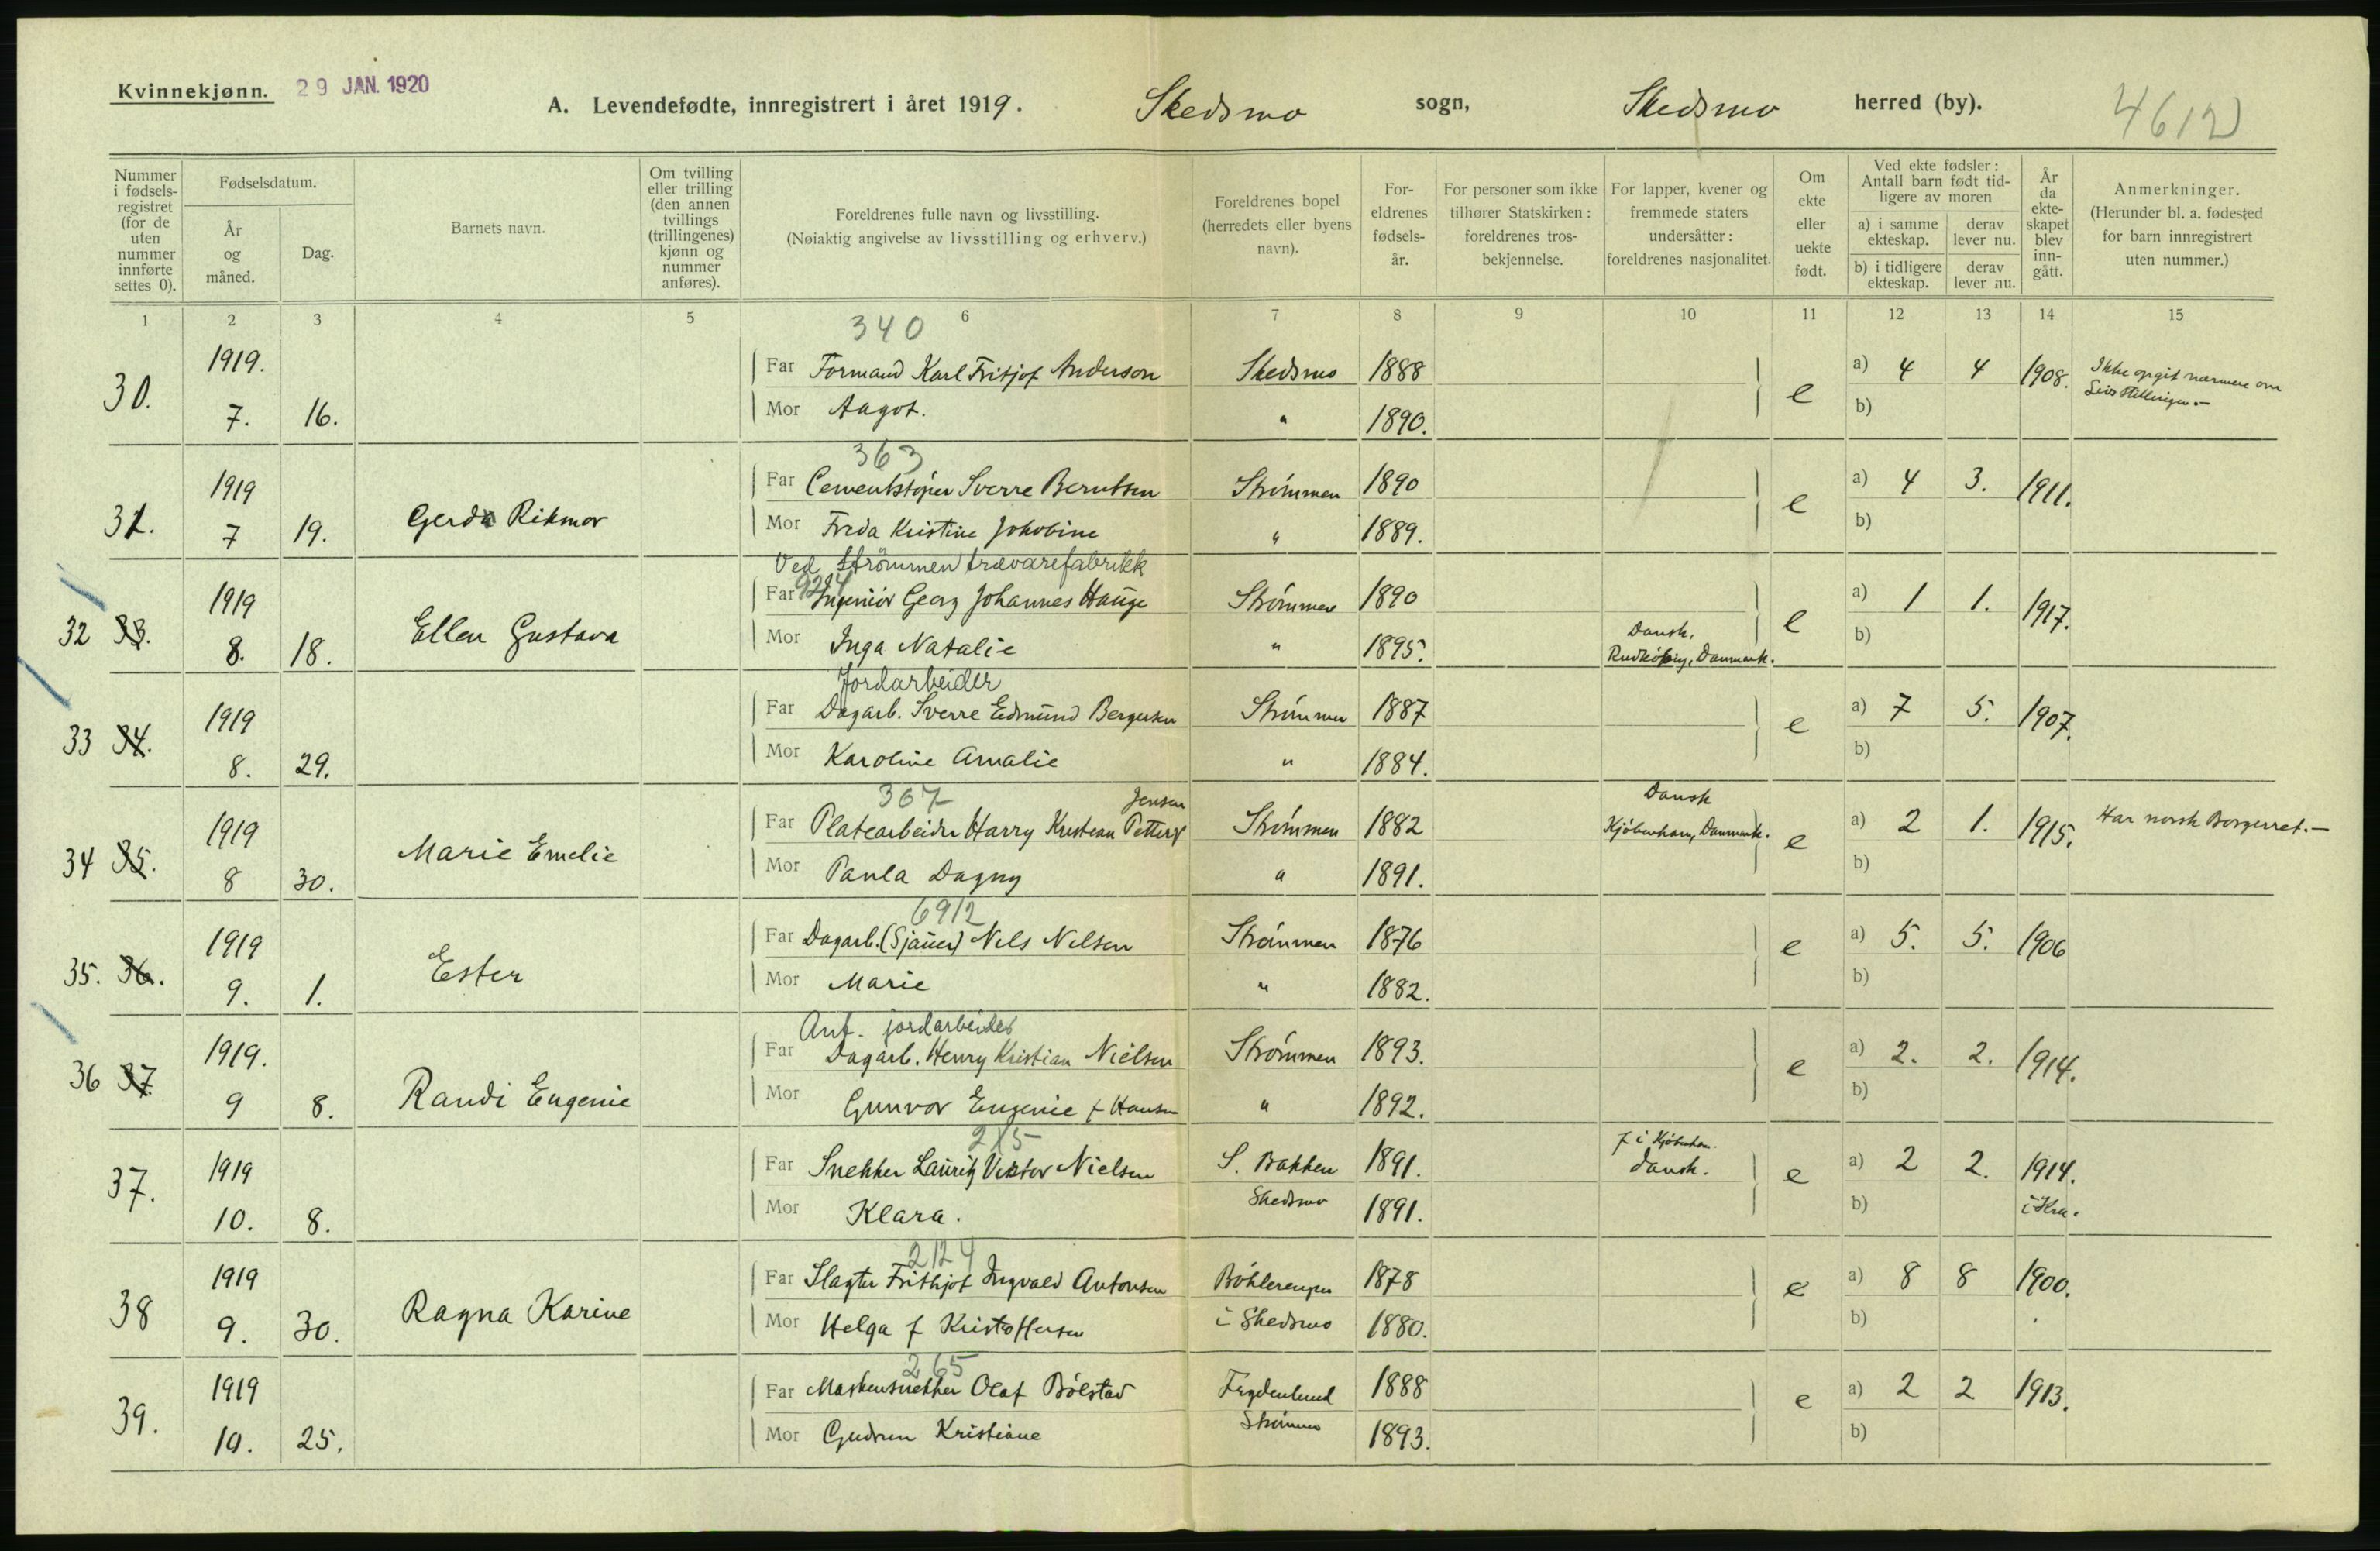 Kvinnekjønn. 29 JAN. 1920
A. Levendefødte, innregistrert i året 1919. Skedsmo sogn, Skedsmo herred (by). 4612
Nummer i fødselsregistret (for de uten nummer innførte settes 0).
Fødselsdatum.
År og måned.
Dag.
Barnets navn.
Om tvilling eller trilling (den annen tvillings (trillingenes) kjønn og nummer anføres).
Foreldrenes fulle navn og livsstilling.
(Nøiaktig angivelse av livsstilling og erhverv.)
Foreldrenes bopel (herredets eller byens navn).
Foreldrenes fødselsår.
For personer som ikke tilhører Statskirken: foreldrenes trosbekjennelse.
For lapper, kvener og fremmede staters undersåtter: foreldrenes nasjonalitet.
Om ekte eller uekte født.
Ved ekte fødsler: Antall barn født tidligere av moren
a) i samme ekteskap. derav lever nu.
b) i tidligere ekteskap. derav lever nu.
År da ekteskapet blev inngått.
Anmerkninger.
(Herunder bl. a. fødested for barn innregistrert uten nummer.)
1 2 3 4 5 6 7 8 9 10 11 12 13 14 15
340
30. 1919. 7. 16. Far Formand Karl Fritjof Anderson Skedsmo 1888 e a) 4 4 1908. Ikke opgit nærmere om Livsstillingen.-
Mor Aagot. " 1890. b)
363
31. 1919 7 19. Gerda Rikmor Far Cementstøper Sverre Berntsen Strømmen 1890 e a) 4 3. 1911.
Mor Freda Kristine Jakobine " 1889. b)
Ved Strømmen trævarefabrikk
32 33. 1919 8. 18. Ellen Gustava Far Ingeniør Georg Johannes Hauge Strømmen 1890 e a) 1 1. 1917.
Mor Inga Natalie " 1895. Dansk, Rudkøbing, Danmark. b)
Jordarbeider
33 34. 1919 8. 29. Far Dagarb. Sverre Edmund Bergersen Strømmen 1887 e a) 7 5. 1907.
Mor Karoline Amalie " 1884. b)
367 Jensen
34 35. 1919 8 30. Marie Emelie Far Platearbeider Harry Kristian Petter Strømmen 1882 Dansk Kjøbenhavn, Danmark. e a) 2 1. 1915. Har norsk Borgerret.-
Mor Paula Dagny " 1891. b)
6912
35. 36. 1919 9. 1. Ester Far Dagarb. (Sjauer) Nils Nilsen Strømmen 1876 e a) 5. 5. 1906
Mor Marie " 1882. b)
Ant. jordarbeider
36 37. 1919. 9 8. Randi Eugenie Far Dagarb. Henry Kristian Nielsen Strømmen 1893. e a) 2. 2. 1914.
Mor Gunvor Eugenie f Hansen " 1892. b)
215
37. 1919 10. 8. Far Snekker Lauritz Viktor Nielsen S. Bakken 1891. f i Kjøbenhavn. dansk. e a) 2 2. 1914.
Mor Klara. Skedsmo 1891. b) i Kra.
2124
38 1919 9. 30. Ragna Karine Far Slagter Frithjof Ingvald Antonsen Bøhlerengen 1878 e a) 8 8 1900.
Mor Helga f Kristoffersen i Skedsmo 1880. b)
265
39. 1919 10. 25. Far Maskinsnekker Olaf Bølstad Frydenlund 1888 e a) 2 2 1913.
Mor Gudrun Kristiane Strømmen 1893. b)